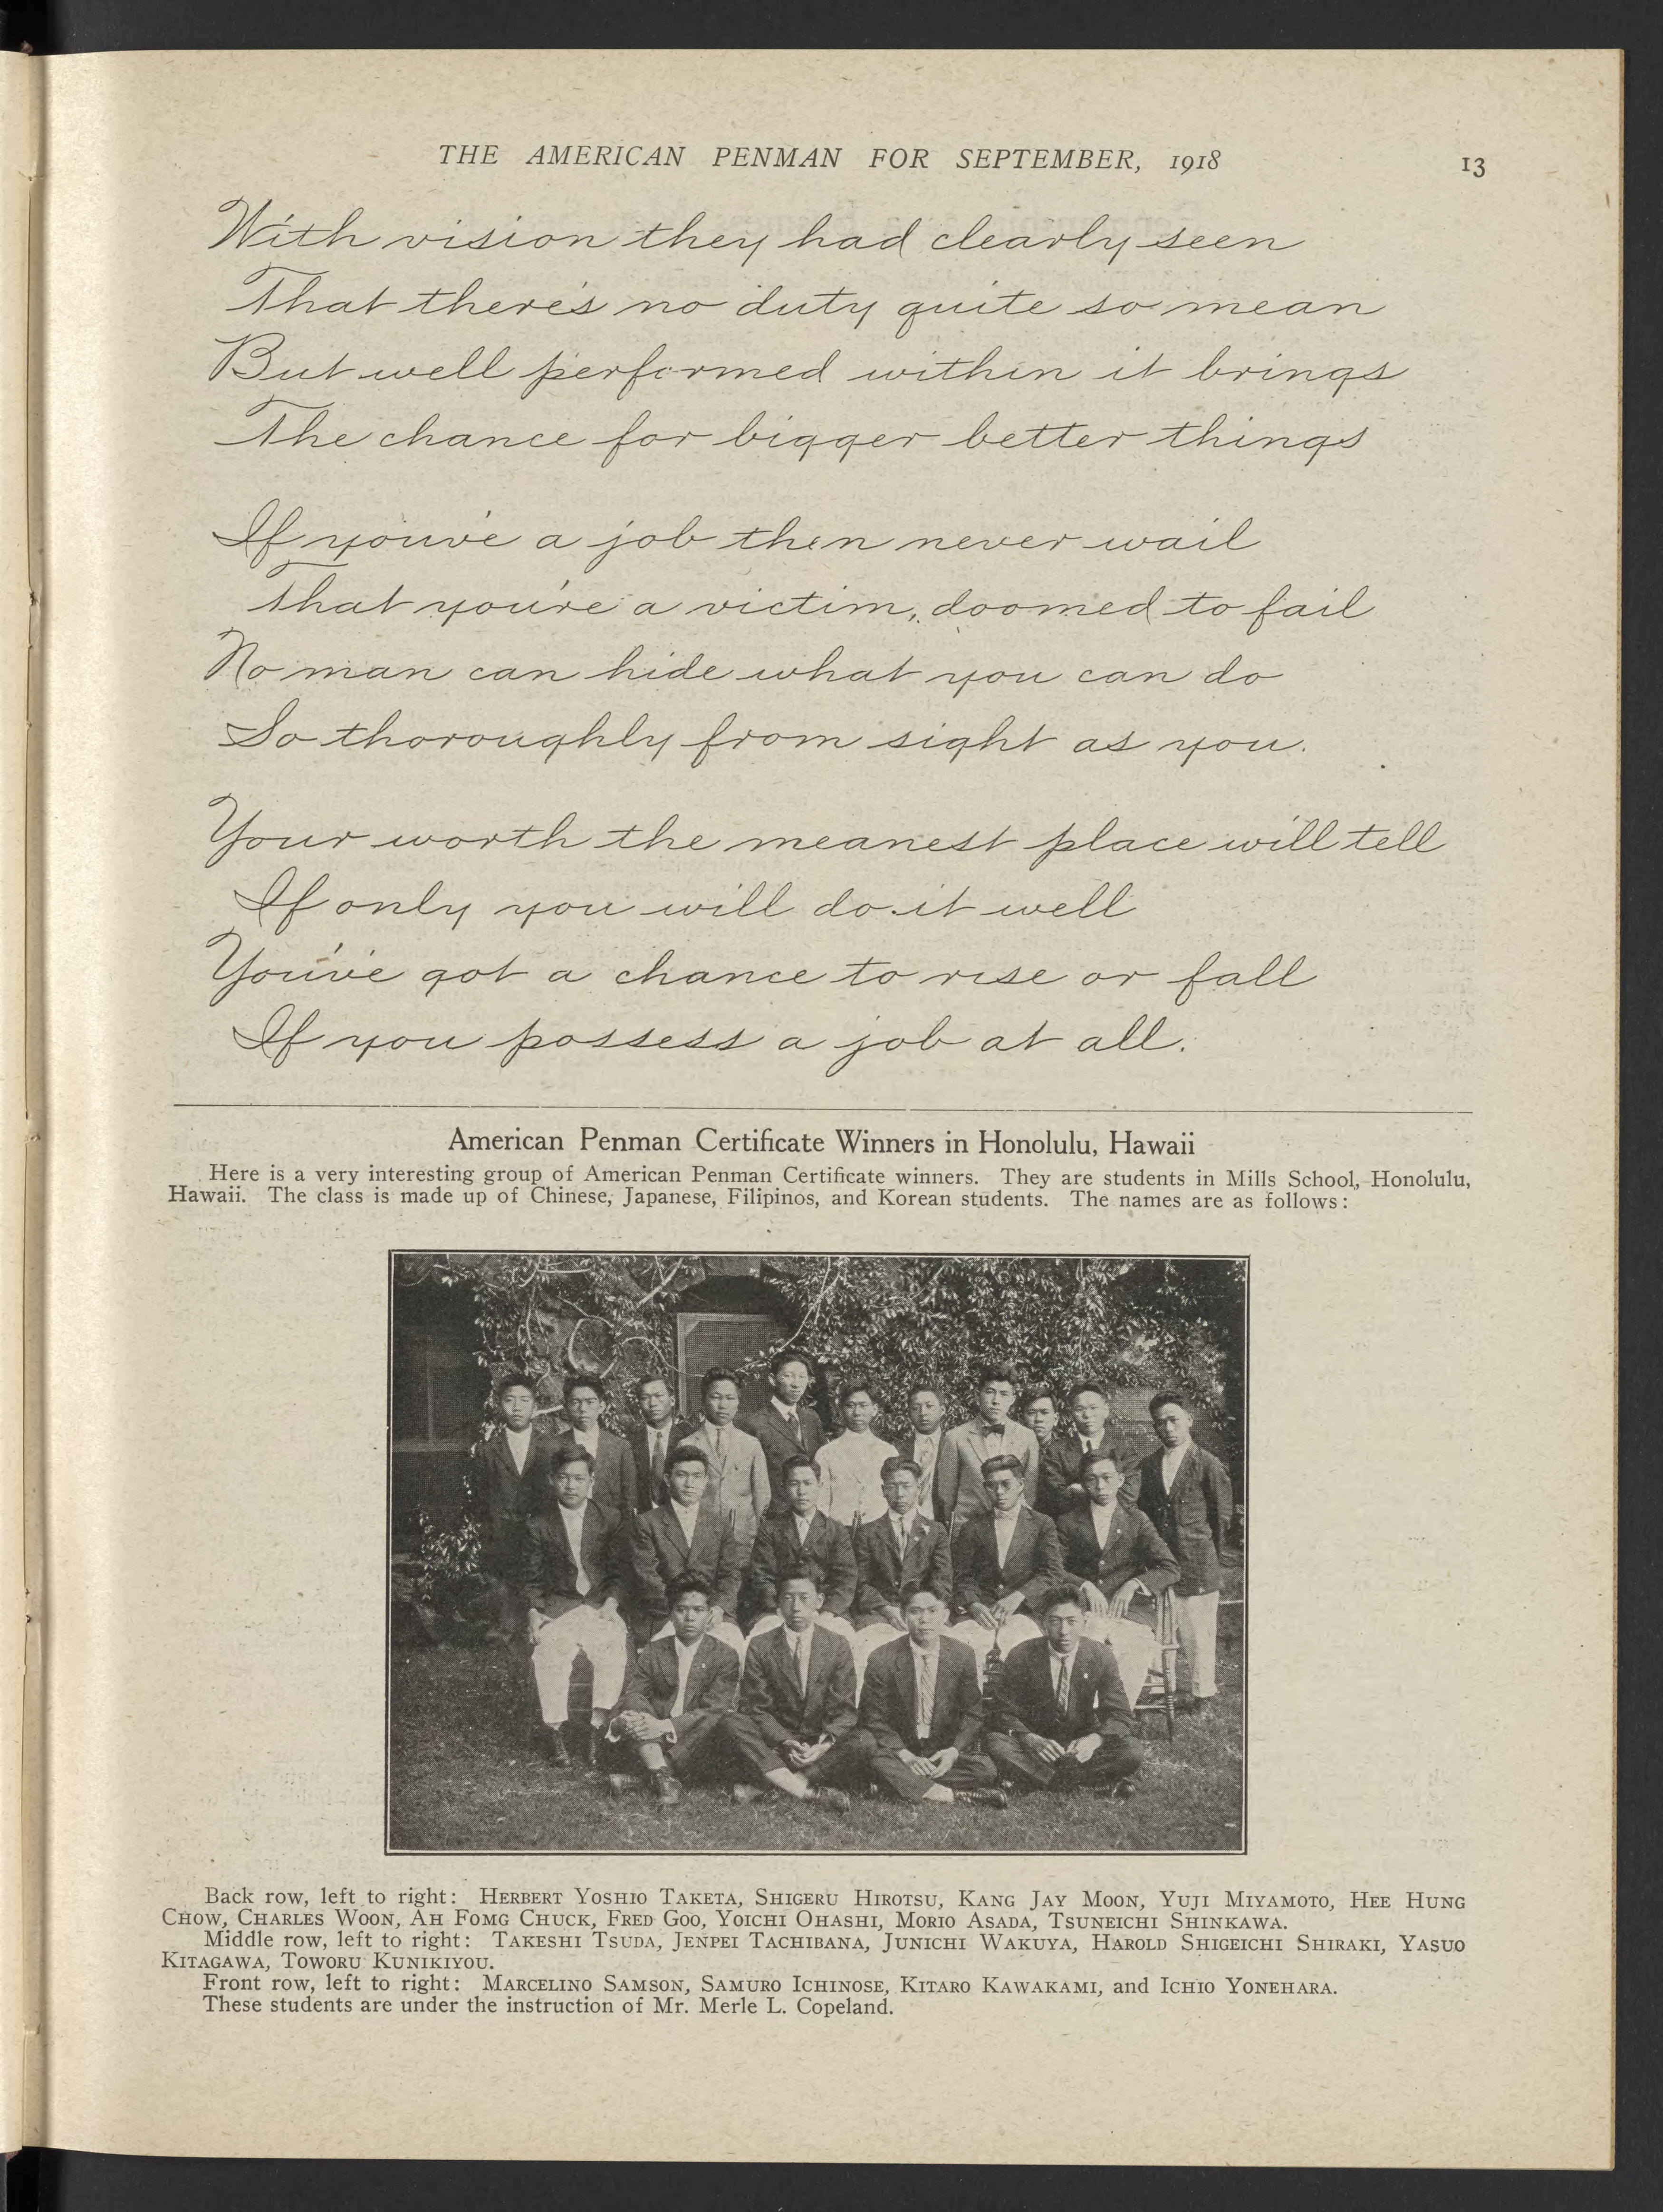 THE AMERICAN PENMAN FOR SEPTEMBER, 1918 13
With vision they had clearly seen
That there's no duty quite so mean
But well performed within it brings
The chance for bigger better things
If you've a job then never wail
That you're a victim, doomed to fail
No man can hide what you can do
So thoroughly from sight as you.
Your worth the meanest place will tell
If only you will do it well
You've got a chance to rise or fall
If you possess a job at all.
American Penman Certificate Winners in Honolulu, Hawaii
Here is a very interesting group of American Penman Certificate winners. They are students in Mills School, Honolulu,
Hawaii. The class is made up of Chinese, Japanese, Filipinos, and Korean students. The names are as follows:
Back row, left to right: HERBERT YOSHIO TAKETA, SHIGERU HIROTSU, KANG JAY MOON, YUJI MIYAMOTO, HEE HUNG
CHOW, CHARLES WOON, AH FOMG CHUCK, FRED GOO, YOICHI OHASHI, MORIO ASADA, TSUNEICHI SHINKAWA.
Middle row, left to right: TAKESHI TSUDA, JENPEI TACHIBANA, JUNICHI WAKUYA, HAROLD SHIGEICHI SHIRAKI, YASUO
KITAGAWA, TOWORU KUNIKIYOU.
Front row, left to right: MARCELINO SAMSON, SAMURO ICHINOSE, KITARO KAWAKAMI, and ICHIO YONEHARA.
These students are under the instruction of Mr. Merle L. Copeland.